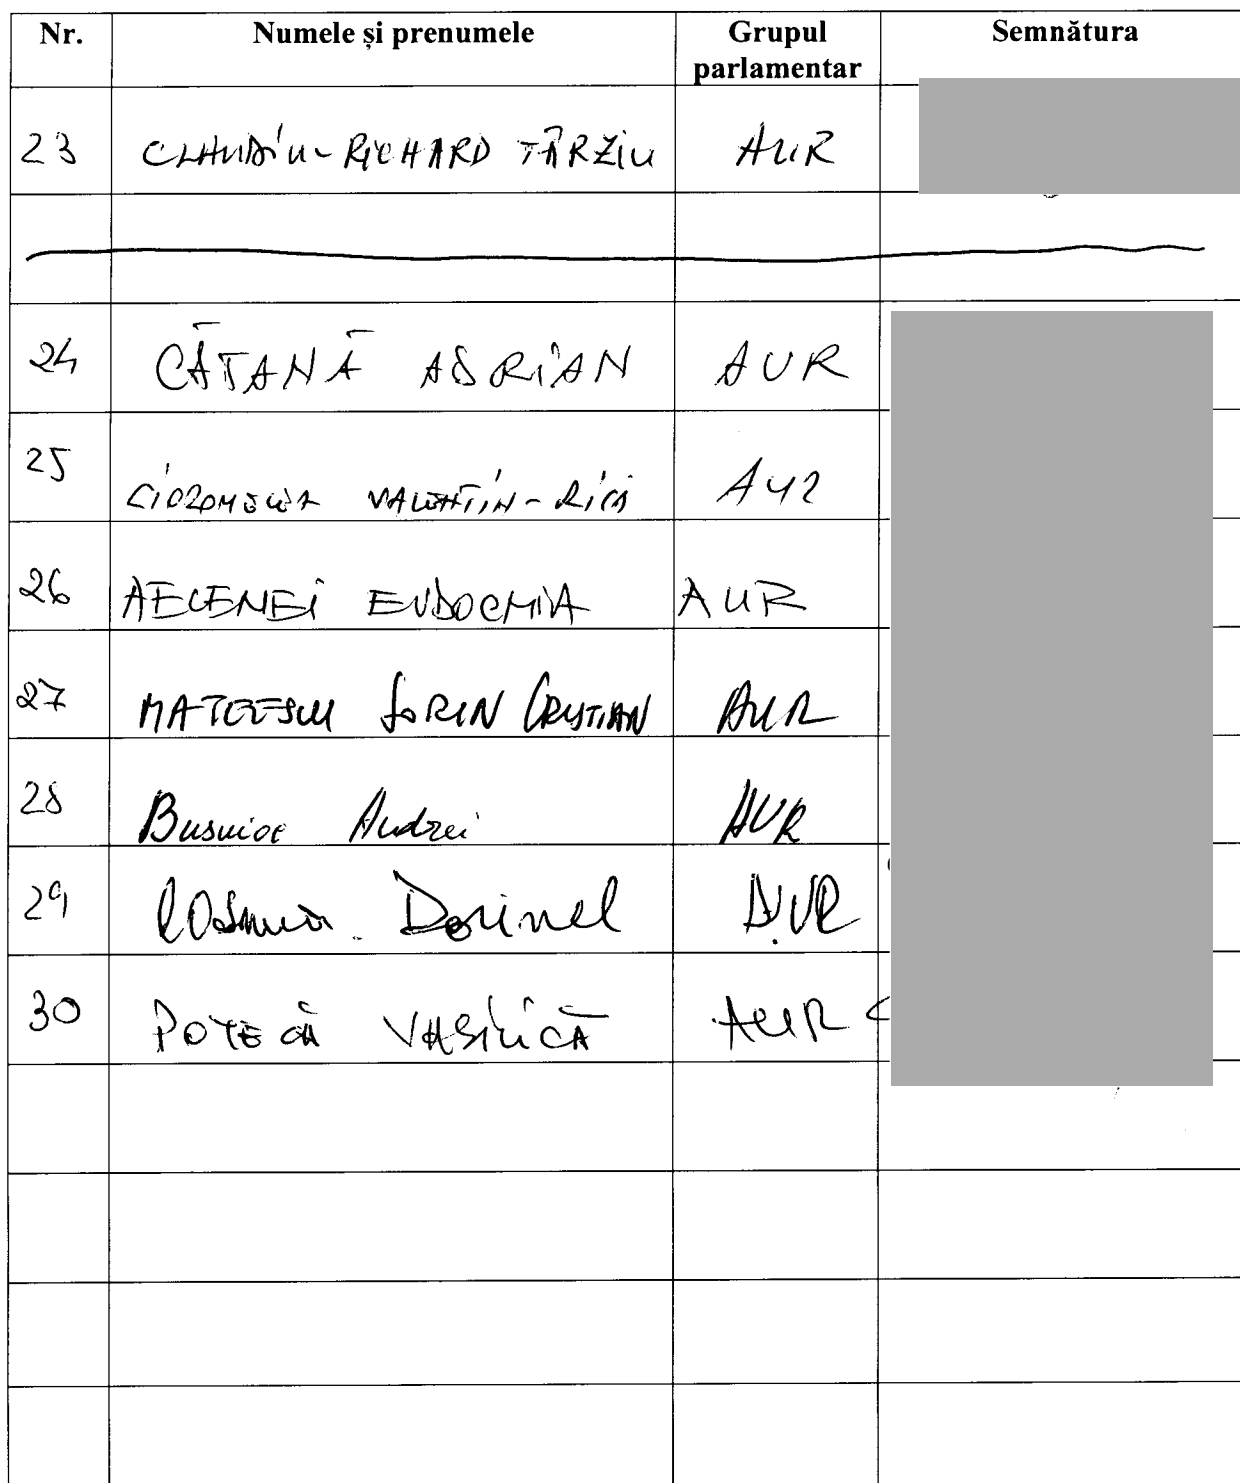 Nr. Numele și prenumele Grupul parlamentar Semnătura
23 CLAUDIU-RICHARD TÂRZIU AUR
24 CĂTANĂ ADRIAN AUR
25 VALENTIN-RICĂ AUR
26 AELENEI EVDOCHIA AUR
27 MATEESCU SORIN CRISTIAN AUR
28 Busuioc Andrei AUR
29 Cosma Dorinel AUR
30 POTECĂ VASILICĂ AUR